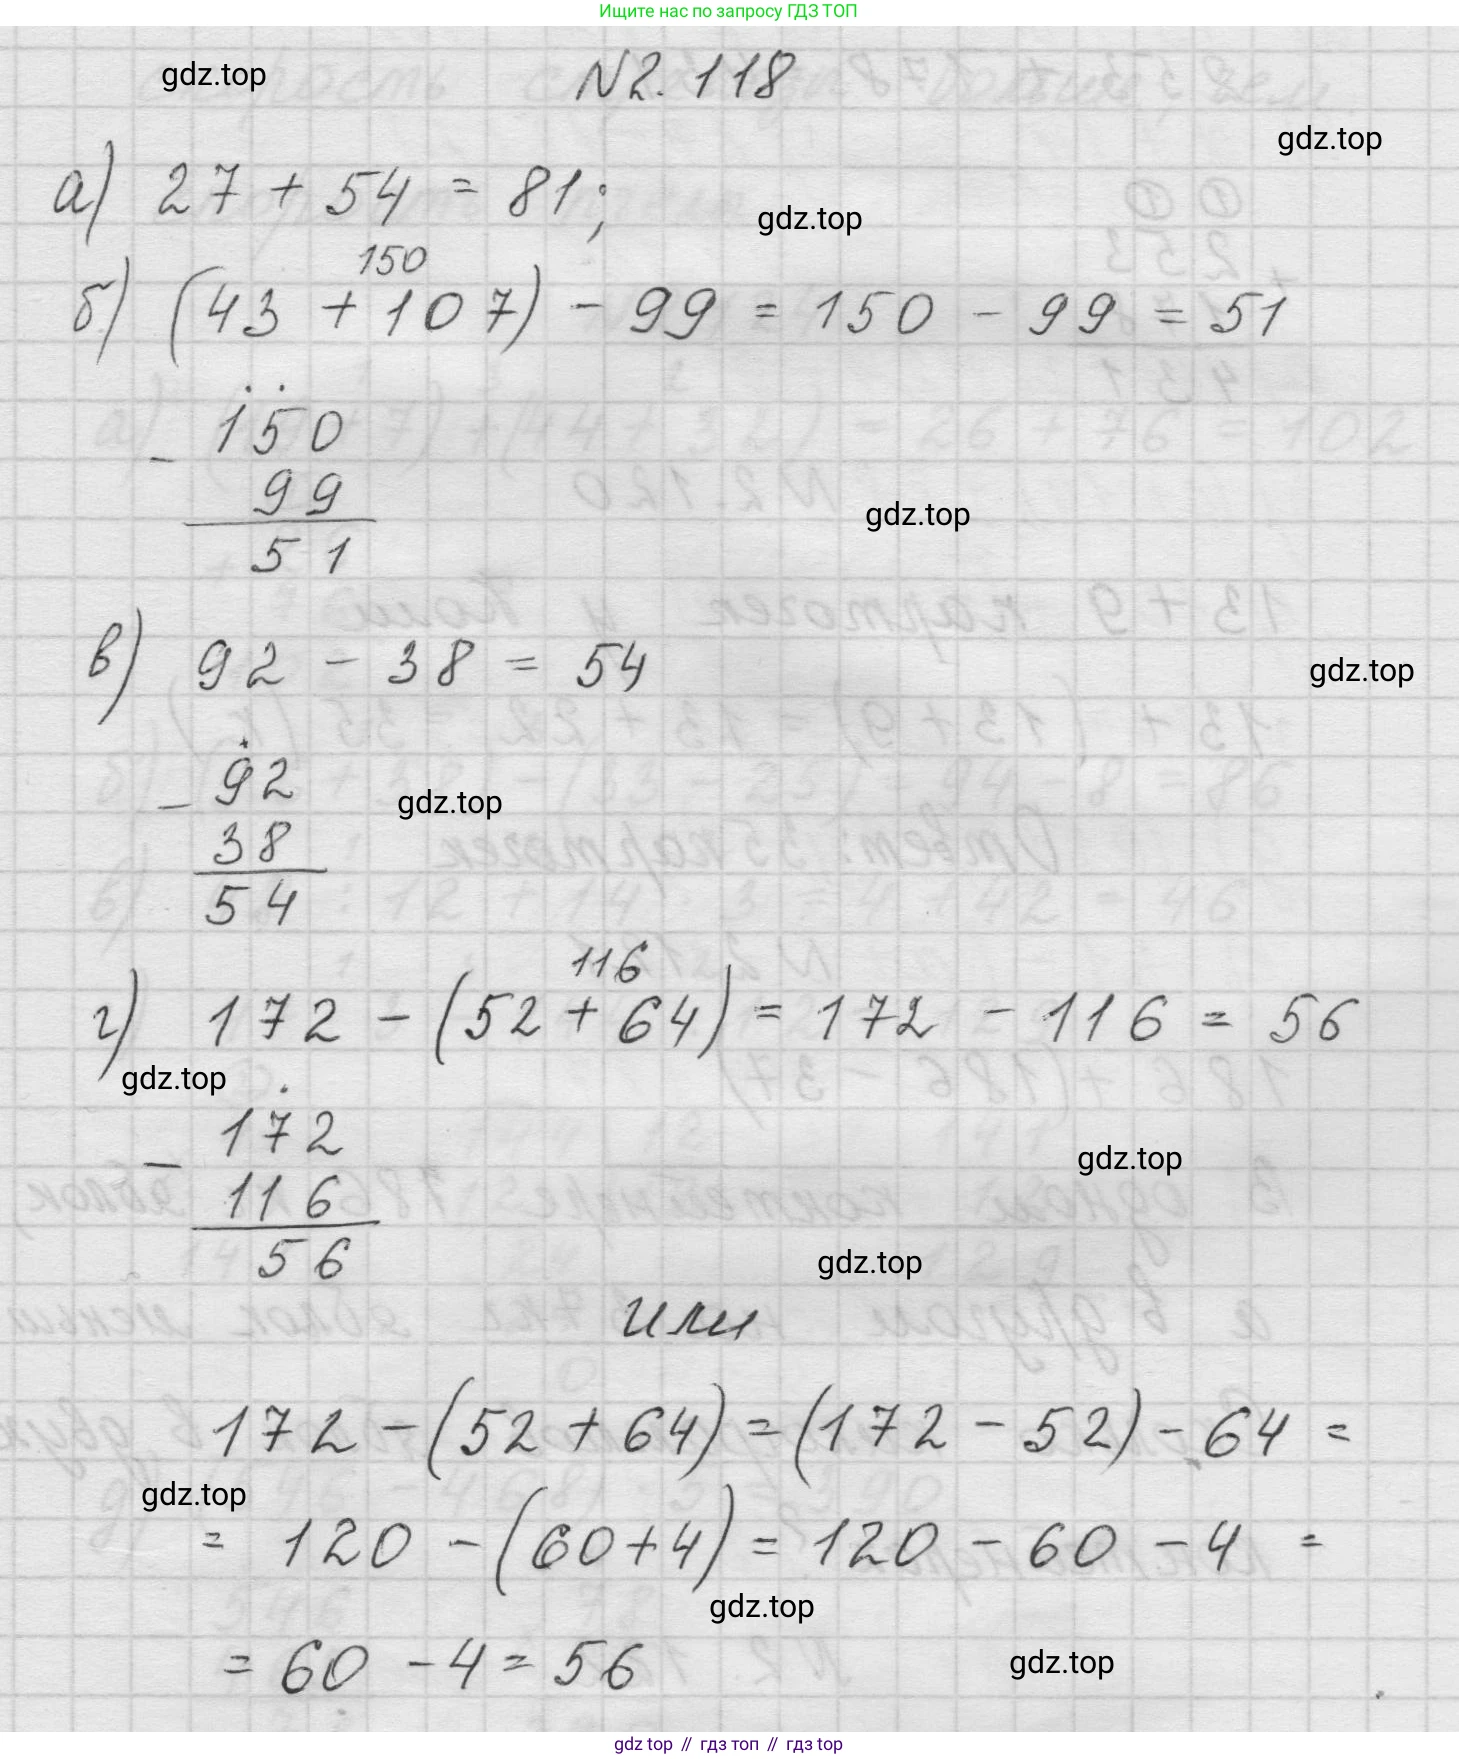 Ищите нас по запросу ГДЗ ТОП
N2.118
gdz.top
gdz.top
а) 27 + 54 = 81;
gdz.top
150
б) (43 + 107) - 99 = 150 - 99 = 51
150
-
99
gdz.top
51
в) 92 - 38 = 54
gdz.top
92
-
gdz.top
38
54
116
г) 172 - (52 + 64) = 172 - 116 = 56
gdz.top
172
-
gdz.top
116
56
gdz.top
или
172 - (52 + 64) = (172 - 52) - 64 =
gdz.top
= 120 - (60 + 4) = 120 - 60 - 4 =
gdz.top
= 60 - 4 = 56
gdz.top
gdz top // гдз топ // gdz top